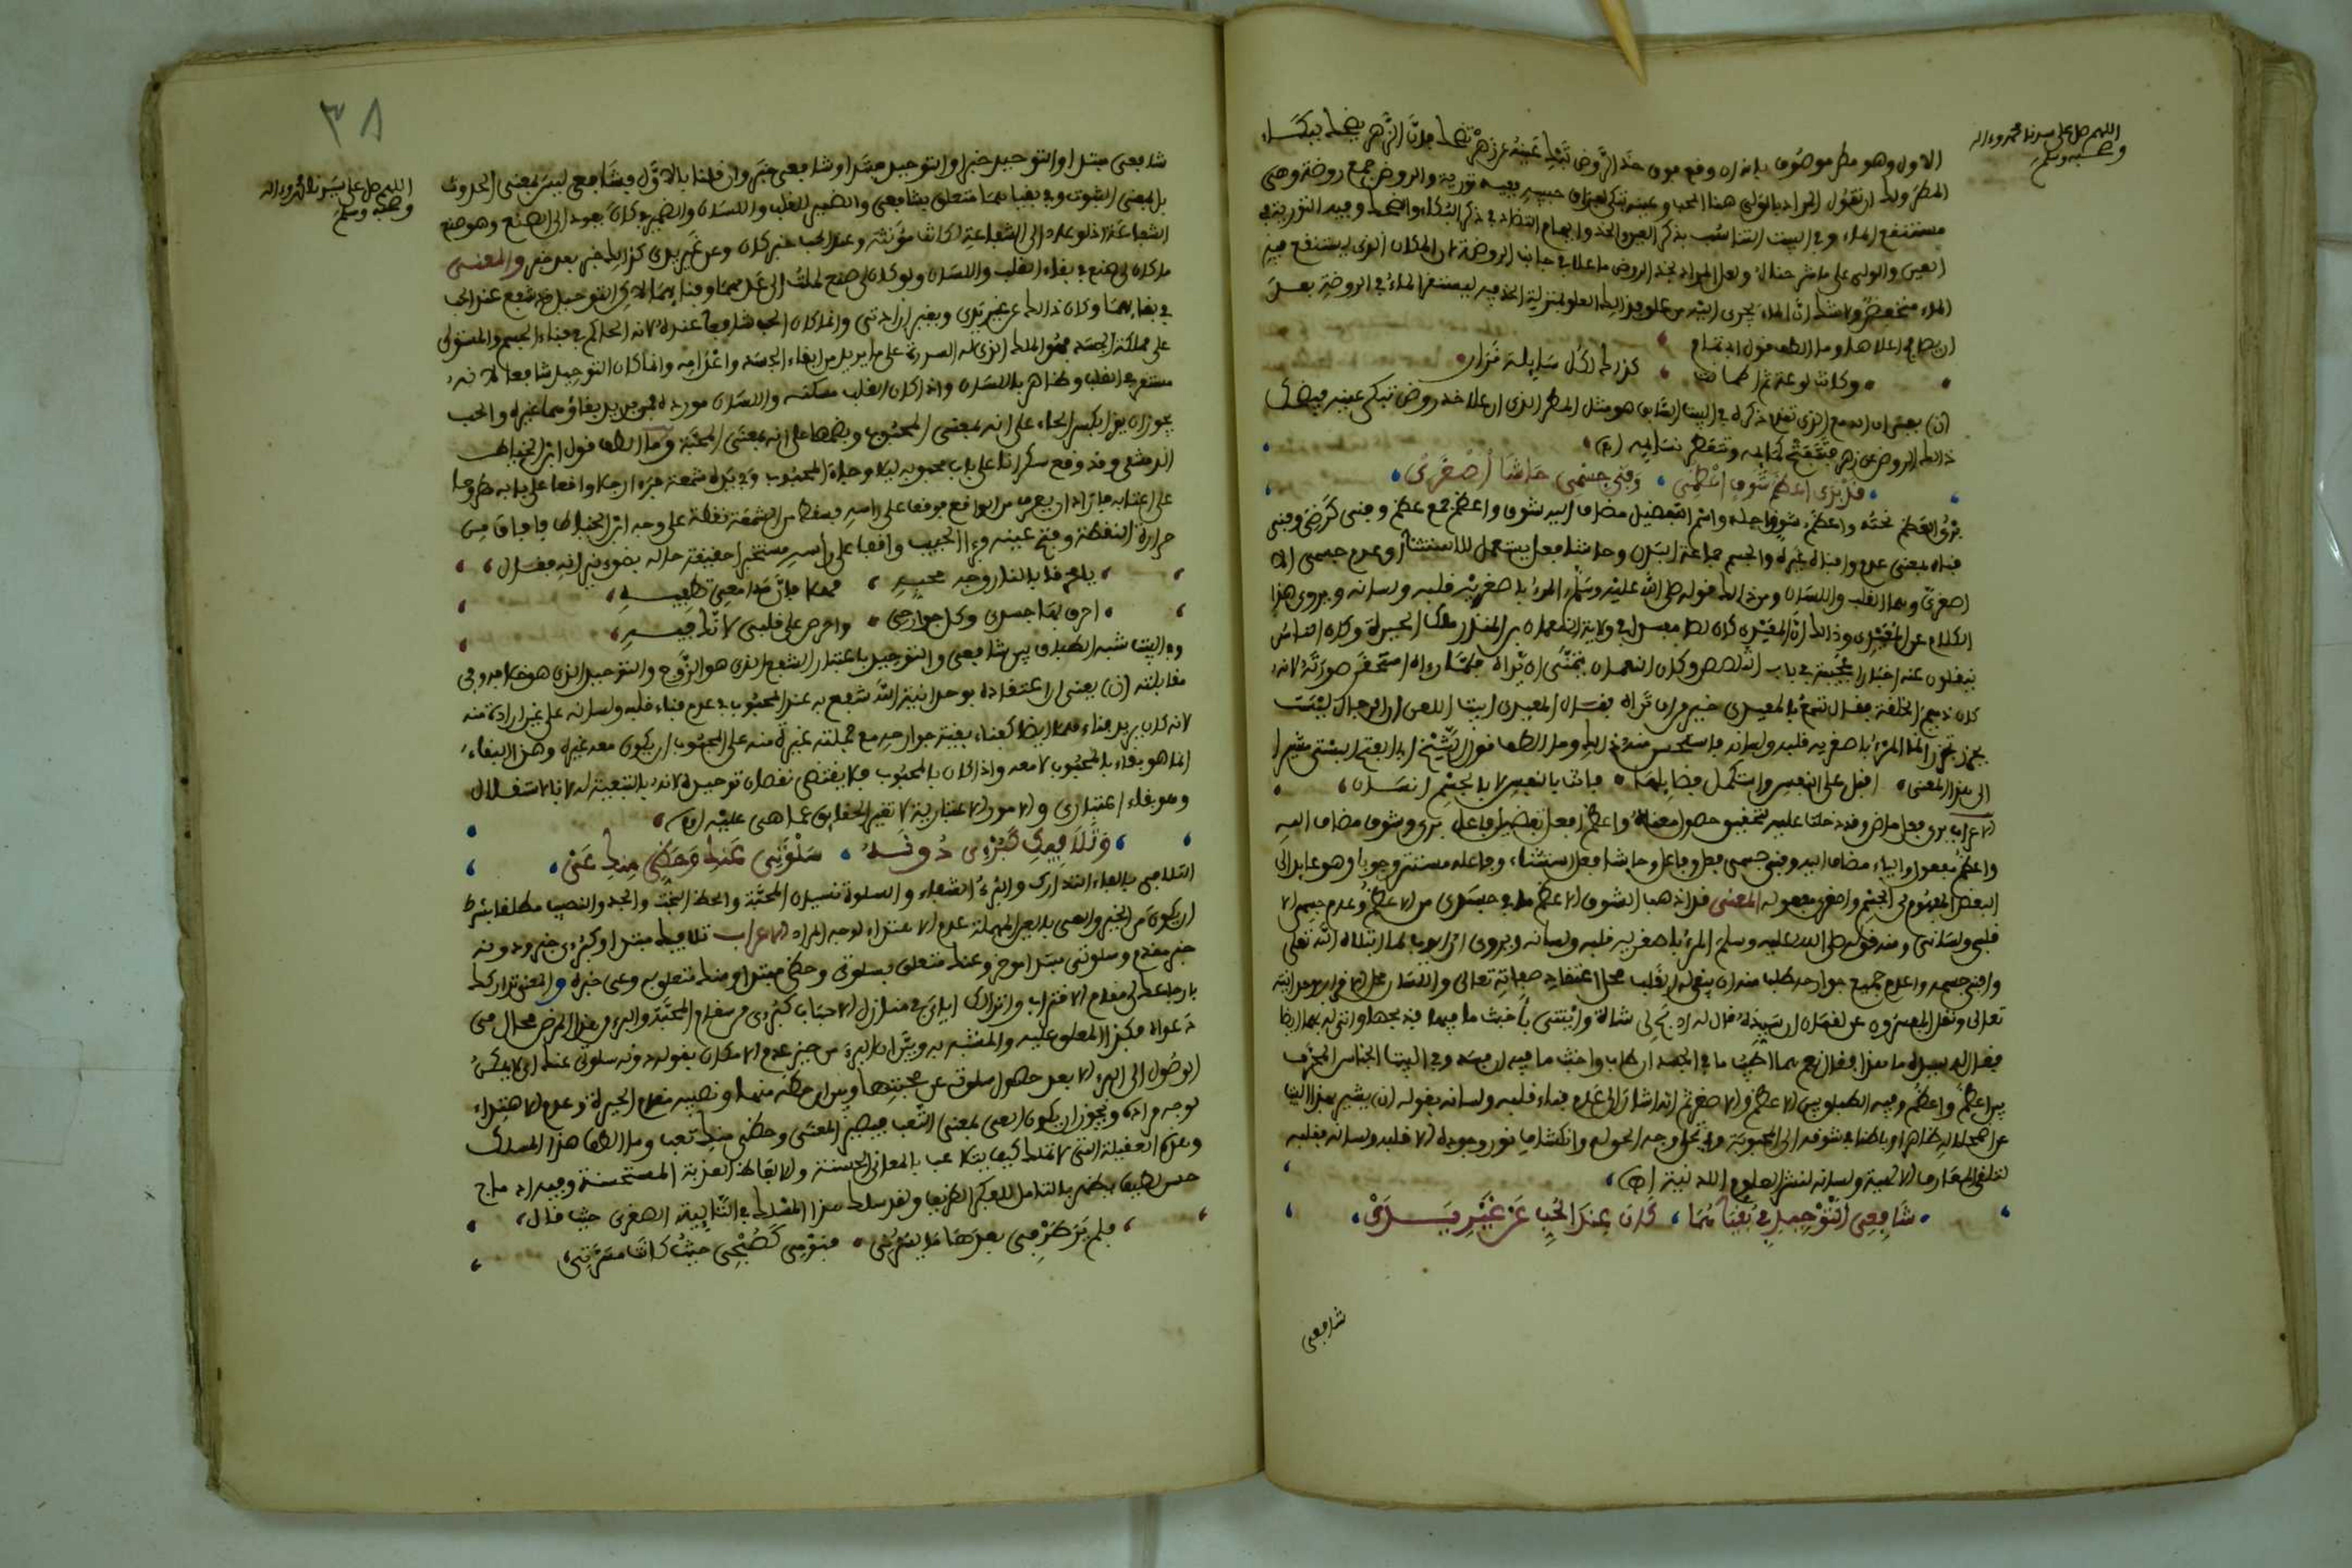 اللهم صل على سيدنا محمد وءاله
وصحبه وسلم
الاول وهو مطر موصوف بانه ان وقع فوق خد الروض تبك عينه عن زهر تضحك فان الزهر يضحك ببكاء
المطر ولك ان تقول المراد بالولي هنا المحب وعينه تبكي لفراق حبيبه ففيه تورية والروض جمع روضة وهي
مستنقع الماء وفي البيت التناسب بذكر العين والخد وايهام التضاد في ذكر البكاء والضحك وفيه التورية في
العين والولي على ما شرحناه ولعل المراد بخد الروض ما علا في جانب الروضة لان المكان الذي يستنقع فيه
الماء منخفض ولا شك ان الماء يجري اليه من علو فذالك العلو بمنزلة الخد فيه ليستقر الماء في الروضة بعد
ان يصافح اعلاها وما الطف قول ابي تمام
وكانت لوعة ثم اطمأنت كذلك لكل سايلة قرار
(ن) يعني ان الدمع الذي تقدم ذكره في البيت السابق هو مثل المطر الذي ان علا خد روض تبكي عينه فيضحك
ذالك الروض عن زهر فتتفتح كمايمه وتتعطر نسايمه (ه)
قد برى اعظم شوق اعظمي وفني جسمي حاشا اصغري
برى العظم نحته واعظم شوق اجله واسم التفضيل مضاف اليه شوق واعظم جمع عظم وفني كرضي وفنى
فناء بمعنى عدم وافناه غيره والجسم جماعة البدن وحاشا فعل يستعمل للاستثناء اي وعدم جسمي الا
اصغري وهما القلب واللسان ومن ذالك قوله صلى الله عليه وسلم المرء باصغريه قلبه ولسانه ويروى هذا
الكلام عن المعيدي وذالك ان المعيدي كان لصا مفسدا في ولاية النعمان بن المنذر ملك الحيرة وكان الناس
ينقلون عنه اخبارا عجيبة في باب التلصص وكان النعمان يتمنى ان يراه فلما رءاه استحقر صورته لانه
كان ذميم الخلقة فقال تسمع بالمعيدي خير من ان تراه فقال المعيدي ابيت اللعن ان الرجال ليست
بجزر تجزر انما المرء باصغريه قلبه ولسانه فاستحسن منه ذالك وما الطف قول الشيخ ابي الفتح البستي مشيرا
الى هذا المعنى اقبل على النفس واستكمل فضايلها فانت بالنفس لا بالجسم انسان
الاعراب برى فعل ماض وقد دخلت عليه لتحقيق حصول معناه واعظم افعل تفضيل فاعل برى وشوق مضاف اليه
واعظم مفعول والياء مضاف اليه وفني جسمي فعل وفاعل وحاشا فعل استثناء وفاعله مستتر وجوبا وهو عايد الى
البعض المفهوم من الجسم واصغري مفعوله المعنى قد اذهب الشوق الاعظم ما في جسدي من الاعظم وعدم جسمي الا
قلبي ولساني ومنه قوله صلى الله عليه وسلم المرء باصغريه قلبه ولسانه ويروى ان ايوب لما ابتلاه الله تعلى
وافنى جسمه واعدم جميع جوارحه طلب منه ان يبقي له القلب محل اعتقاد صفاته تعالى واللسان محل الاقرار بوحدانيته
تعالى ونقل المفسرون عن لقمان ان سيده قال له اذبح لي شاة وايتني باخبث ما فيها فذبحها واتى له بهما ايضا
فقال له سيده ما هذا فقال نعم هما اطيب ما في الجسد ان طابا واخبث ما فيه ان فسدا وفي البيت الجناس المحرف
بين اعظم واعظم وفيه الطباق بين الاعظم والاصغر ثم انه اشار الى عدم فناء قلبه ولسانه بقوله (ن) يشير بهذا البيت
عن اضمحلاله ظاهرا وباطنا في شوقه الى المحبوبة وفي تحول وجه الحول وانكشاف نور وجوده الا قلبه ولسانه فقلبه
لتلقي المعارف الالهية ولسانه لنشر العلوم اللدنية (ه)
شافعي التوحيد في بقياهما كان عند الحب عن غير يدي
شافعي
٣٨
اللهم صل على سيدنا محمد وءاله
وصحبه وسلم
شافعي مبتدا والتوحيد خبر او التوحيد مبتدا وشافعي خبر وان قلنا بالاول فشافع ليس بمعنى الحدوث
بل بمعنى الثبوت وفي بقياهما متعلق بشافعي والضمير للقلب واللسان والضمير في كان يعود الى الصنع وهو صنع
الشفاعة اذ لو عاد الى الشفاعة لكانت مؤنثة وعند الحب خبر كان وعن غير يدي كذالك خبر بعد خبر والمعنى
ما كان لي صنع في بقاء القلب واللسان ولو كان لي صنع لملت الى عدمهما وفنايهما لاكن التوحيد قد شفع عند الحب
في بقايهما وكان ذالك عن غير يدي وبغير ارادتي وانما كان الحب شافعا عنده لانه الحاكم في فناء الجسم والمستولي
على مملكة الجسد فهو الملك الذي له السدرة على ما يريد من ابقاء الجسد واعدامه وانما كان التوحيد شافعا لانه
مستقر في القلب وظاهر باللسان واذا كان القلب مسكنه واللسان مورده فهو يريد بقاؤهما غيره والحب
يجوز ان يقرا بكسر الحاء على انه بمعنى المحبوب وبضمها على انه بمعنى المحبة وما الطف قول ابن الخياط
الدمشقي وقد وقع سكرانا على باب محبوبه ليلا وجاء المحبوب وفي يده شمعة فراى رجلا واقعا على بابه مطروحا
على اعتابه فاراد ان يعرف من الواقع فوقف على راسه فسقط من الشمعة نقطة على وجه ابن الخياط فافاق من
حرارة النقطة وفتح عينه فراى الحبيب واقفا على راسه مستخبرا حقيقة حاله بضوء نبراسه فقال
يا محرقا بالنار وجه محبه مهلا فان مدامعي تطفيه
احرق بها جسدي وكل جوارحي واحرص على قلبي لانك فيه
وفي البيت شبه الطباق بين شافعي والتوحيد باعتبار الشفع الذي هو الزوج والتوحيد الذي هو خلافه وفي
مقابلته (ن) يعني ان اعتقاده بوحدانية الله شفع به عند المحبوب في عدم فناء قلبه ولسانه على غير ارادة منه
لانه كان يريد فناءهما ايضا كفناء بقية جوارحه مع جملته غيرة منه على المحبوب ان يكون معه غيره وهذا البقاء
انما هو بقاء بالمحبوب لا معه واذا كان بالمحبوب فلا يقتضي نقصان توحيده لانه بالتبعية له لا بالاستقلال
وهو بقاء اعتباري والامور الاعتبارية لا تغير الحقايق عما هي عليه (ه)
وتلافيك كبرئي دونه سلوتي عنك وحظي منك عي
التلافي بالفاء التدارك والبرء الشفاء والسلوة نسيان المحبة والحظ البخت والجد والنصيب مطلقا بشرط
ان يكون من الخير والعي بالعين المهملة عدم الاهتداء لوجه المراد الاعراب تلافيك مبتدا وكبرئي خبر ودونه
خبر مقدم وسلوتي مبتدا مؤخر وعنك متعلق بسلوتي وحظي مبتدا ومنك متعلق به وعي خبره والمعنى تداركك
بارجاعك لي مقام الاقتراب وانزالك اياي في منازل الاحباب كبرئي من سقام المحبة والبرء من هذا المرض محال من
دعواه فكذا المعلق عليه والمشبه به وبين ان البرء من حيز عدم الامكان بقوله دونه سلوتي عنك اي لا يمكن
الوصول الى البرء الا بعد حصول سلوته عن محبتها وبين ان حظه منها ونصيبه مقام الحيرة وعدم الاهتداء
لوجه مراده ويجوز ان يكون العي بمعنى التعب فيصير المعنى وحظي منك تعب وما الطف هذا المسلك
وهذه العقيلة التي لا تملك كيف يتلاعب بالمعاني الحسنة والالفاظ العذبة المستحسنة وفيه ادماج
حسن لطيف يظهر بالتامل للفكر الظريف ولقد سلك هذا المسلك في التائية الصغرى حيث قال
فلم يظفر مني بعدها ما يسرني فنومي كصبحي حيث كانت مسرتي